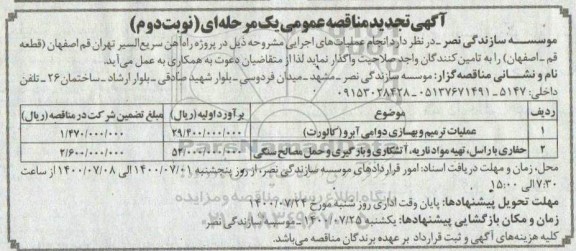 آگهی تجدید مناقصه عمومی یک مرحله‌ای (نوبت دوم)
موسسه سازندگی نصر ـ در نظر دارد انجام عملیات‌های اجرایی مشروحه ذیل در پروژه راه‌آهن سریع‌السیر تهران قم اصفهان (قطعه
قم ـ اصفهان) را به تامین‌کنندگان واجد صلاحیت واگذار نماید لذا از متقاضیان دعوت به همکاری به عمل می‌آید.
نام و نشانی مناقصه‌گزار: موسسه سازندگی نصر ـ مشهد ـ میدان فردوسی ـ بلوار شهید صادقی ـ بلوار ارشاد ـ ساختمان ۲۶ ـ تلفن
داخلی: ۵۱۴۷ ـ ۰۵۱۳۷۶۷۱۴۹۱ ـ ۰۹۱۵۳۰۲۸۴۲۸
ردیف موضوع برآورد اولیه (ریال) مبلغ تضمین شرکت در مناقصه (ریال)
۱ عملیات ترمیم و بهسازی دوامی آبرو (کالورت) ۲۹/۴۰۰/۰۰۰/۰۰۰ ۱/۴۷۰/۰۰۰/۰۰۰
۲ حفاری باراسل، تهیه مواد ناریه، آتشکاری و بارگیری و حمل مصالح سنگی ۵۲/۰۰۰/۰۰۰/۰۰۰ ۲/۶۰۰/۰۰۰/۰۰۰
محل، زمان و مهلت دریافت اسناد: امور قراردادهای موسسه سازندگی نصر، از روز پنجشنبه ۱۴۰۰/۰۷/۰۱ الی ۱۴۰۰/۰۷/۰۸ از ساعت
۷:۳۰ الی ۱۵:۰۰
مهلت تحویل پیشنهادها: پایان وقت اداری روز شنبه مورخ ۱۴۰۰/۰۷/۲۴
زمان و مکان بازگشایی پیشنهادها: یکشنبه ۱۴۰۰/۰۷/۲۵ ـ موسسه سازندگی نصر
کلیه هزینه‌های آگهی و ثبت قرارداد بر عهده برندگان مناقصه می‌باشد.